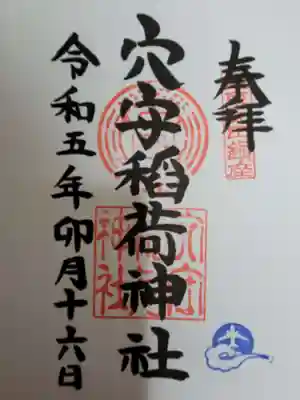 奉拝
穴守稲荷神社
令和五年卯月十六日
穴守
稲荷
神社